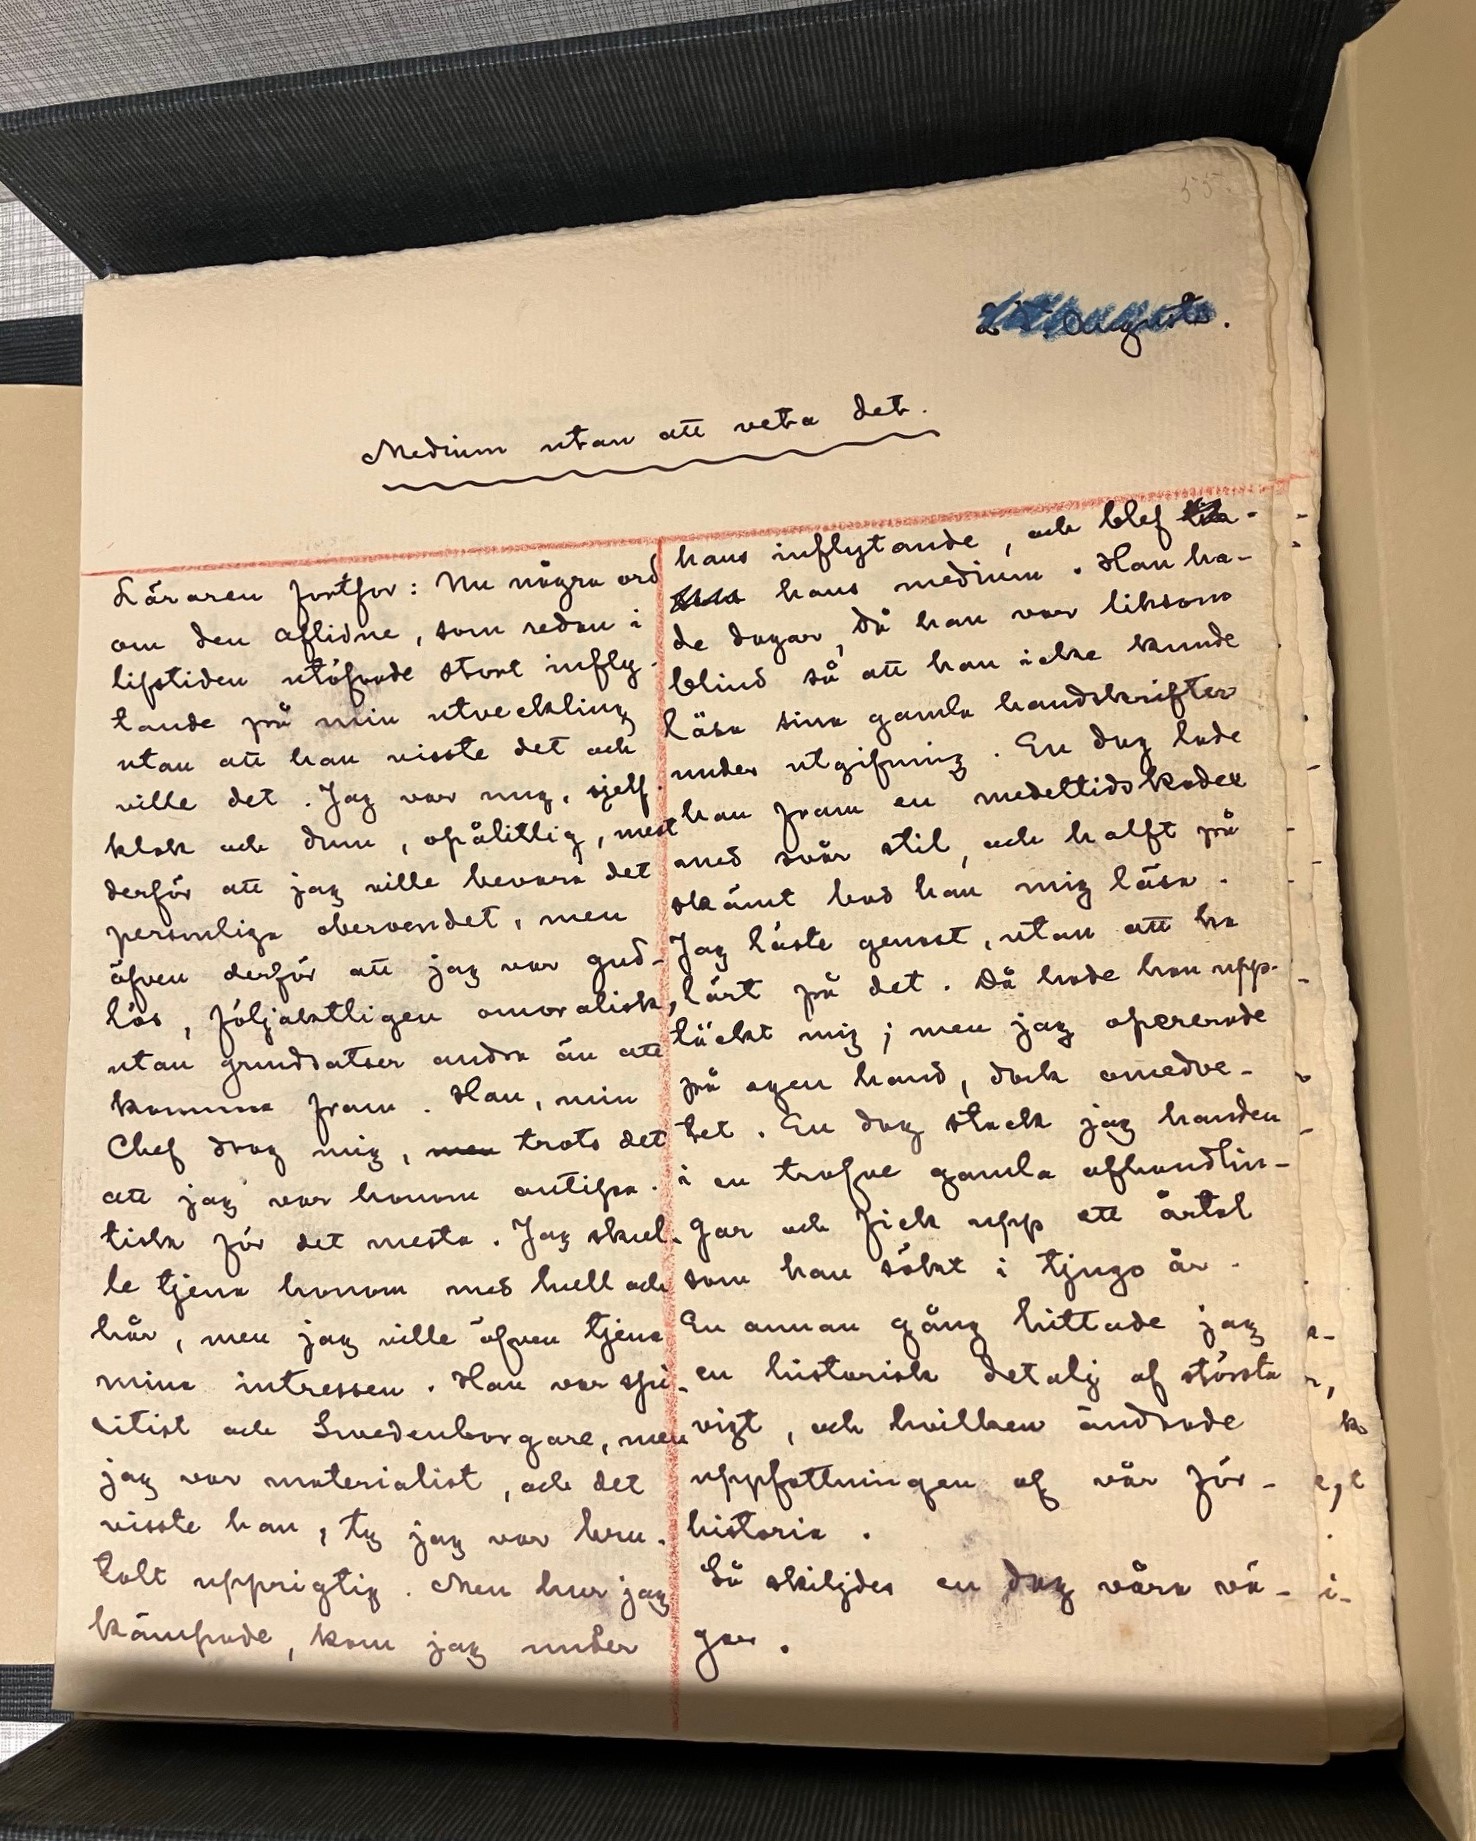 55.
Augusti.
Medium utan att veta det.
Läraren fortfor: Nu några ord
om den aflidne, som redan i
lifstiden utöfvade stort infly-
tande på min utveckling
utan att han visste det och
ville det. Jag var ung, sjelf-
klok och dum, opålitlig, mest
derför att jag ville bevara det
personliga oberoendet, men
äfven derför att jag var gud-
lös, följaktligen omoralisk,
utan grundsatser andra än att
komma fram. Han, min
Chef drog mig, men trots det
att jag var honom antipa-
tisk för det mesta. Jag skul-
le tjena honom med hull och
hår, men jag ville äfven tjena
mina intressen. Han var spi-
ritist och Swedenborgare, men
jag var materialist, och det
visste han, ty jag var bru-
talt upprigtig. Men hur jag
kämpade, kom jag under
hans inflytande, och blef
hans medium. Han ha-
de dagar, då han var liksom
blind så att han icke kunde
läsa sina gamla handskrifter
under utgifning. En dag lade
han fram en medeltidskodex
med svår stil, och halft på
skämt bad han mig läsa.
Jag läste genast, utan att ha
lärt på det. Då hade han upp-
täckt mig; men jag opererade
på egen hand, dock omedve-
tet. En dag stack jag handen
i en trafve gamla afhandlin-
gar och fick upp ett årtal
som han sökt i tjugo år.
En annan gång hittade jag
en historisk detalj af största
vigt, och hvilken ändrade
uppfattningen af vår för-
historia.
Så skiljdes en dag våra vä-
gar.